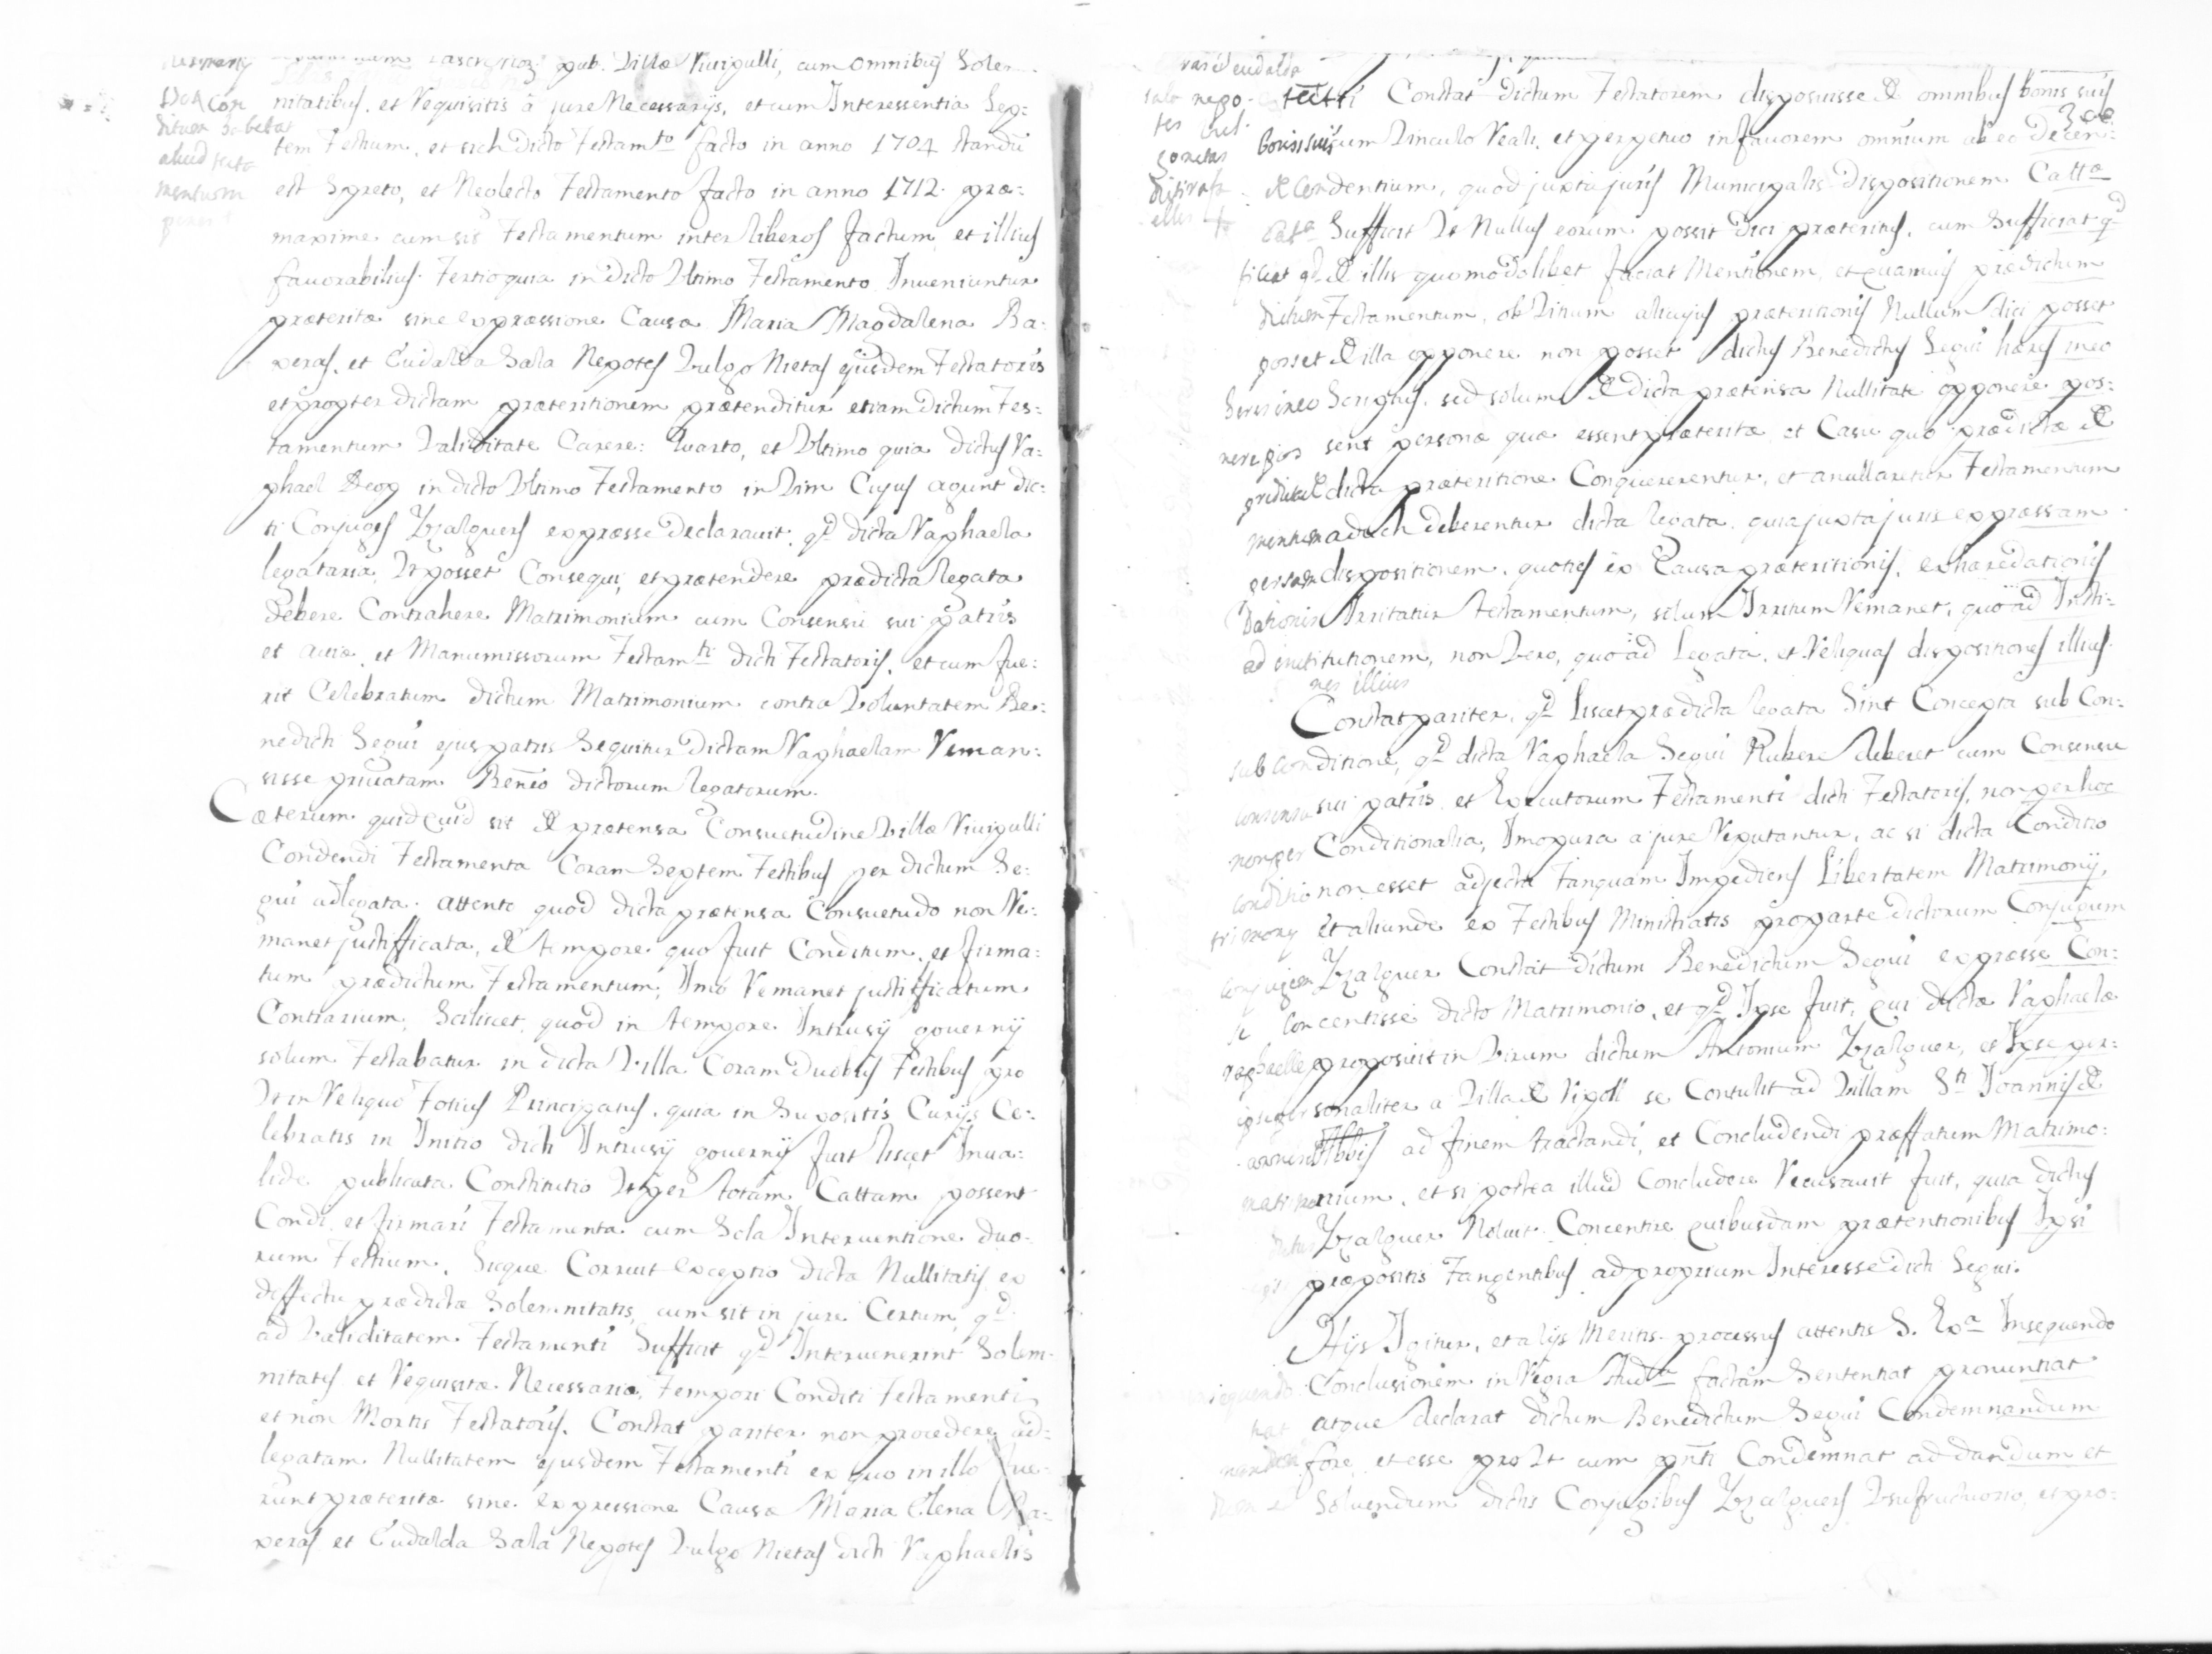 pub. Villæ Rivipulli, cum omnibus Solem-
nitatibus, et Requisitis à jure Necessarijs, et cum Interessentia Sep:
tem Testium, et sich Dicto Testam.to facto in anno 1704 standũ
est Spreto, et Neglecto Testamento facto in anno 1712. præ:
maxime cum sis Testamentum inter liberos factum, et illius
favorabilius. Tertio quia in Dicto Vltimo Testamento Inveniuntur
præteritæ sine expræssione Causæ Maria Magdalena Ra:
peras, et Eudalda Sala Nepotes Vulgo Nietas ejusdem Testatoris
et propter dictam præteritionem prætenditur etiam dictum Tes:
tamentum Validitate Carere: Quarto, et Vltimo quia dictus Ra:
phael Deop in dicto Vltimo Testamento in Vim Cujus agunt dic:
ti Conjuges Yzalguers expræsse Declaravit, qd. dicta Raphaela
legataria, Vt posset Consequi, et prætendere prædicta legata
debere Contrahere Matrimonium cum Consensu sui patris
et aviæ, et Manumissorum Testam.ti dicti Testatoris, et cum fue:
rit Celebratum dictum Matrimonium contra Voluntatem Be:
nedicti Segui ejus patris Sequitur Dictam Raphaelam Reman:
sisse privatam Benẽo dictorum legatorum.
Cæterum quidquid sit de prætensa Consuetudine Villæ Rivipulli
Condendi Testamenta Coram Septem Testibus per dictum Se:
gui adlegata. attento quod dicta prætensa Consuetudo non Re:
manet justifficata, de tempore quo fuit Conditum, et firma:
tum prædictum Testamentum, Imo Remanet justifficatum
Contrarium, Sciliscet, quod in tempore Intrusij governij
solum Testabatur in dicta Villa Coram Duobus Testibus pro
Vt in Reliquo Totius Principatus, quia in Supositis Curijs Ce:
lebratis in Initio dicti Intrusij governij fuit liscet Inva:
lide publicata Constitutio Vt per totam Cattam possent
Condi, et firmari Testamenta cum Sola Interventione duo-
rum Testium, Sicque Corruit exceptio dicta Nullitatis ex
deffectu prædictæ Solemnitatis, cum sit in jure Certum, qd.
ad Validitatem Testamenti Sufficit qd. Intervenerint Solem-
nitates et Requisitæ Necessariæ Tempori Conditi Testamenti
et non Mortis Testatoris. Constat pariter non procedere ad:
legatam Nullitatem ejusdem Testamenti ex quo in illo fue-
runt præteritæ sine expressione Causæ Maria Elena Ra-
peras et Eudalda Sala Nepotes Vulgo Nietas dicti Raphaelis
Constat dictum Testatorem disposuisse de omnibus bonis suis
cum Vinculo Reali, et perpetuo in favorem omnium ab eo Decen:
dentium, quod juxta juris Municipalis Dispositionem Cattæ
Sufficit Vt Nullus eorum possit dici præteritus, cum Sufficiat qd
de illis quomodolibet faciat Mentionem, et quamvis prædictum
Testamentum, ob Vitium alicujus præteritionis Nullum dici posset
de illa opponere non posset dictus Benedictus Segui hæres ineo
Scriptus, sed solum de dicta prætensa Nullitate opponere pos:
sent personæ quæ essent præteritæ et Casu quo prædictæ de
dicta præteritione Conquererentur, et anullaretur Testamentum
aduch deberentur dicta legata, quia juxta juris expræssam
dispositionem, quoties ex Causa præteritionis, exhæredationis
Irritatur testamentum, solum Irritum Remanet, quo ad Insti-
tutionem, non Vero, quo ad Legata, et Reliquas dispositiones illius.
Constat pariter, qd. liscet prædicta legata Sint Concepta sub Con:
ditione, qd. dicta Raphaela Segui Nubere deberet cum Consensu
sui patris, et Executorum Testamenti dicti Testatoris, non per hoc
Conditionalia, Imo pura a jure Reputantur, ac si dicta Conditio
non esset adjecta Tanquam Impediens Libertatem Matrimonij,
Et aliunde ex Testibus Ministratis pro parte dictorum Conjugum
Yzalguer Constat dictum Benedictum Segui expræsse Con:
centisse dicto Matrimonio, et qd. Ipse fuit, qui dictæ Raphaelæ
proposuit in Virum dictum Antonium Yzalguer, et Ipse per:
sonaliter a Villa de Ripoll se Contulit ad Villam S.ti Joannis de
Abbis ad finem tractandi, et Concludendi præffatum Matrimo:
nium, et si postea illud Concludere Recusavit fuit, quia dictus
Yzalguer Noluit Concentire quibusdam prætentionibus Ipsi
præpositis Tangentibus ad proprium Interesse dicti Segui.
Hijs Igitur, et alijs Meritis processus attentis S. Ex.a Insequendo
Conclusionem in Regia Aud.tia factam Sententiat pronuntiat
atque declarat dictum Benedictum Segui Condemnandum
fore, et esse pro Vt cum pñti Condemnat ad dandum et
Solvendum dictis Conjugibus Yzalguers Vsufructuario, et pro: